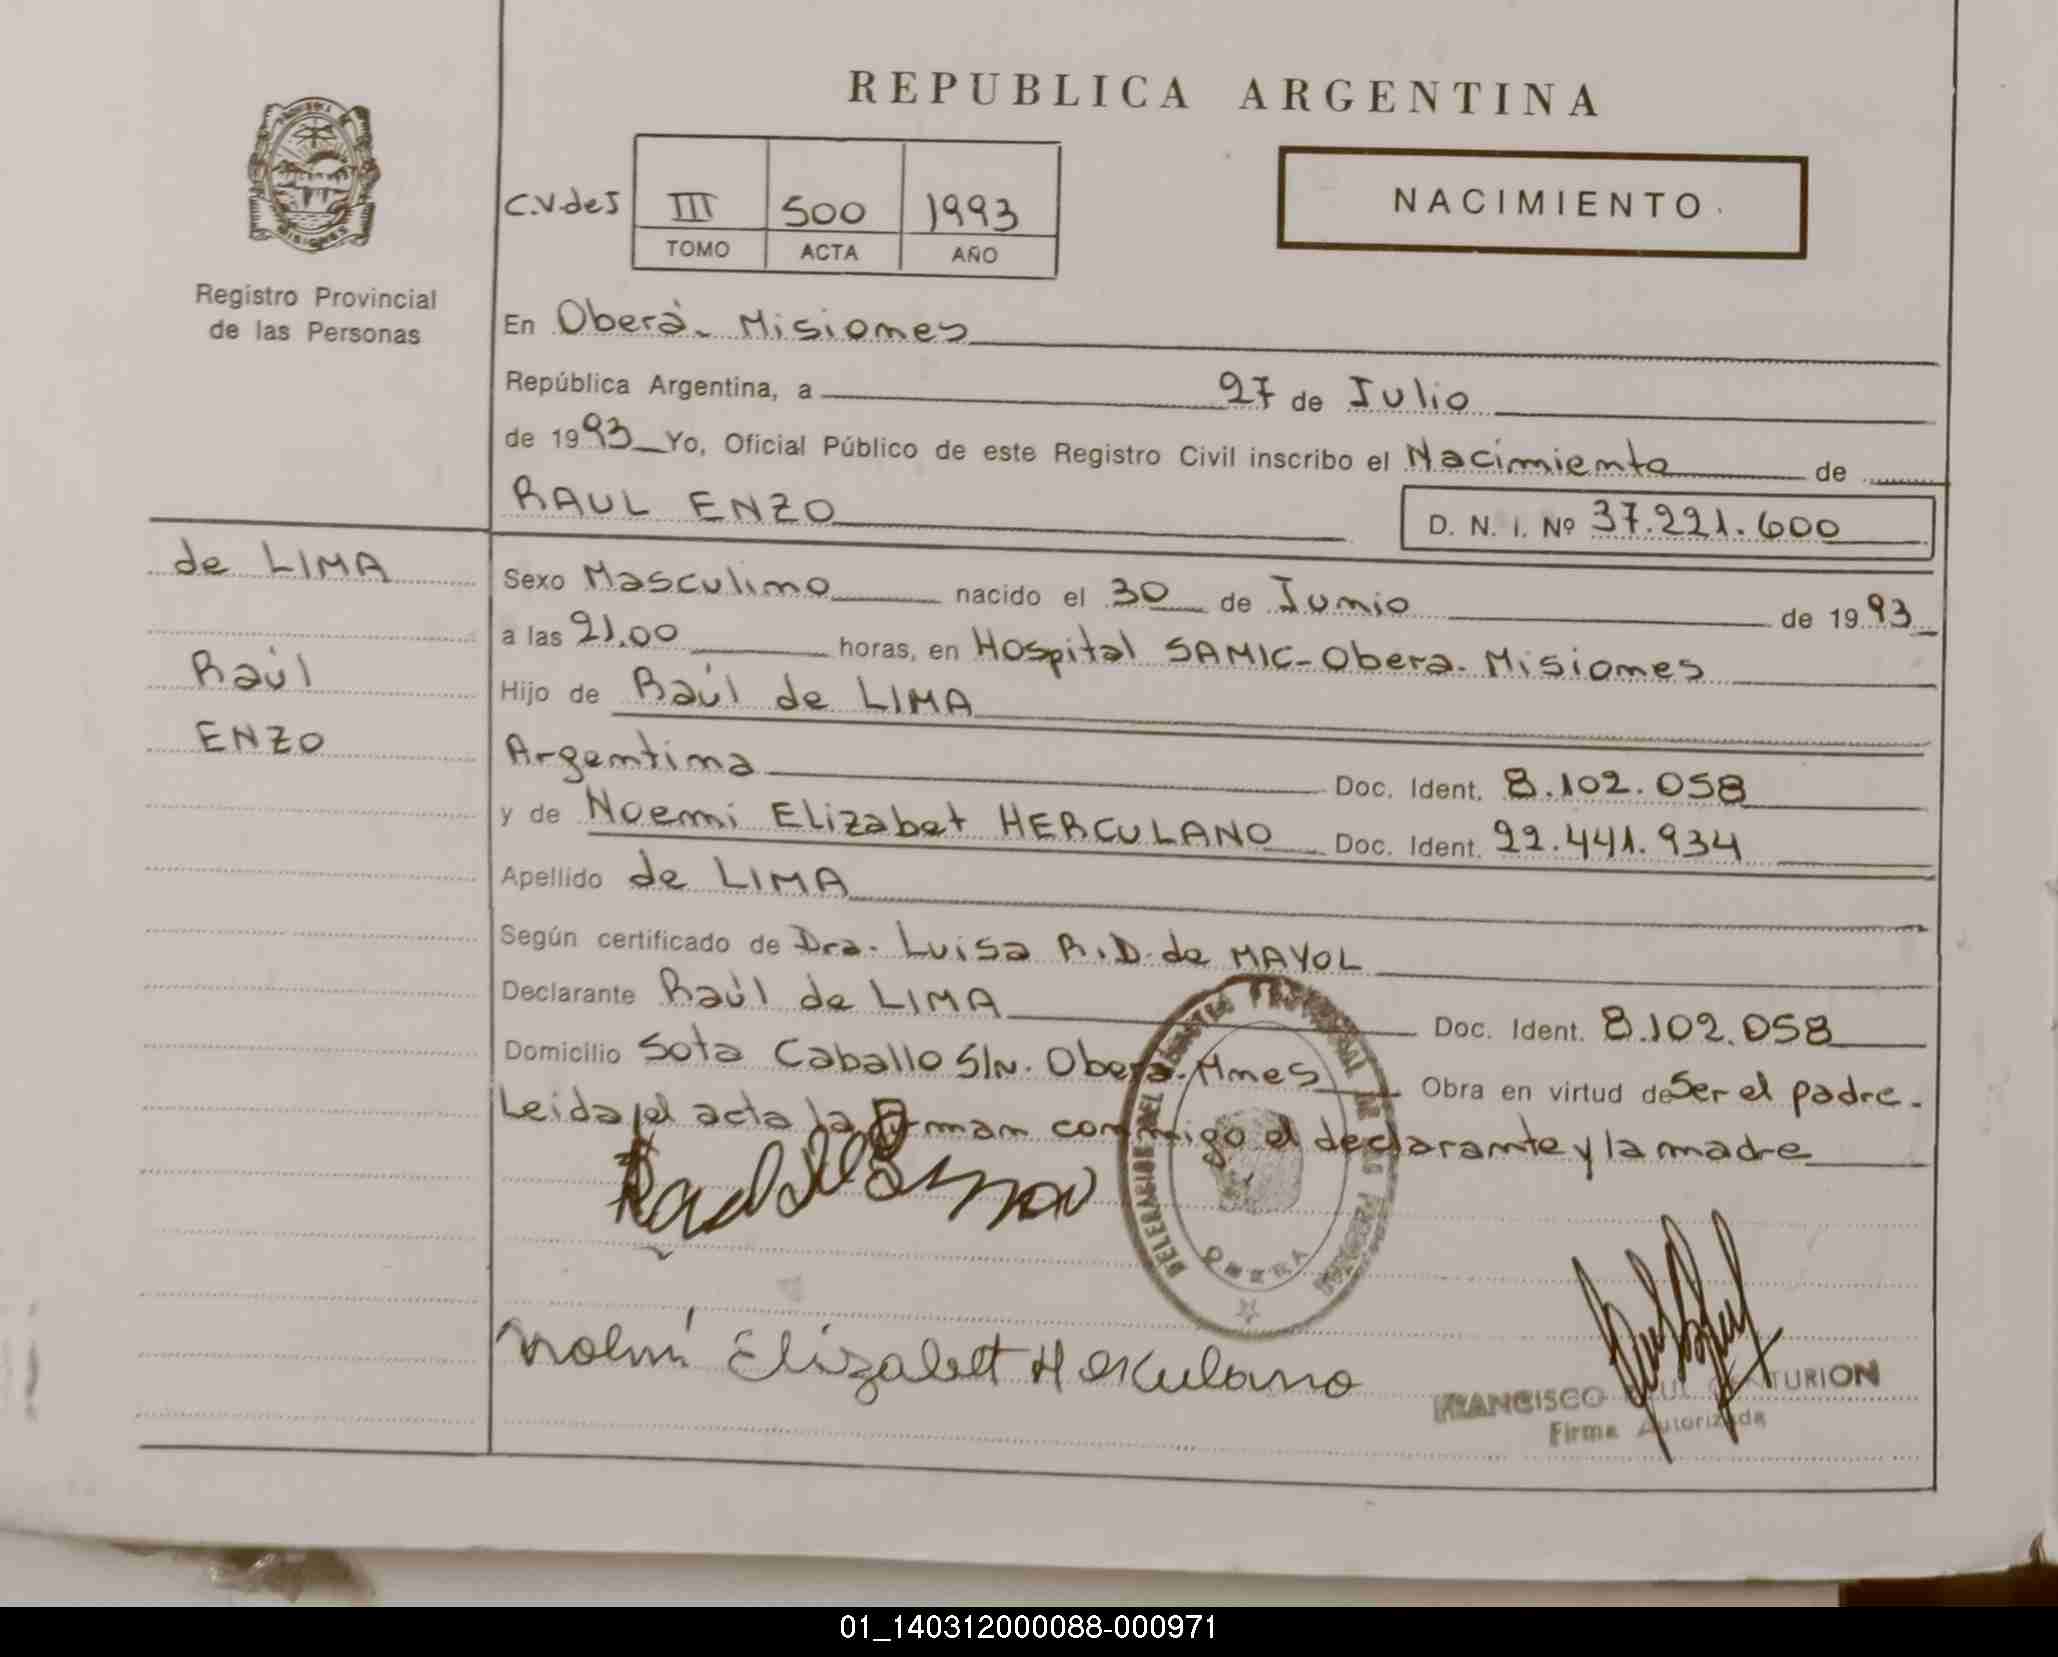 REPUBLICA ARGENTINA
NACIMIENTO
C.V.deJ III 500 1993
TOMO ACTA AÑO
Registro Provincial
de las Personas
En Oberá- Misiones
República Argentina, a 27 de Julio
de 1993 Yo, Oficial Público de este Registro Civil inscribo el Nacimiento de
RAUL ENZO D. N. I. Nº 37.221.600
de LIMA
Raúl
ENZO
Sexo Masculino nacido el 30 de Junio de 1993
a las 21.00 horas, en Hospital SAMIC-Obera-Misiones
Hijo de Raúl de LIMA
Argentina Doc. Ident. 8.102.058
y de Noemi Elizabet HERCULANO Doc. Ident. 22.441.934
Apellido de LIMA
Según certificado de Dra. Luisa R.D. de MAYOL
Declarante Raúl de LIMA Doc. Ident. 8.102.058
Domicilio Sota Caballo S/N. Obera-Mnes Obra en virtud de Ser el padre.
Leida el acta la Firman conmigo el declarante y la madre
OBERA
Noemí Elizabet Herculano
FRANCISCO CENTURION
Firma Autorizada
01_140312000088-000971